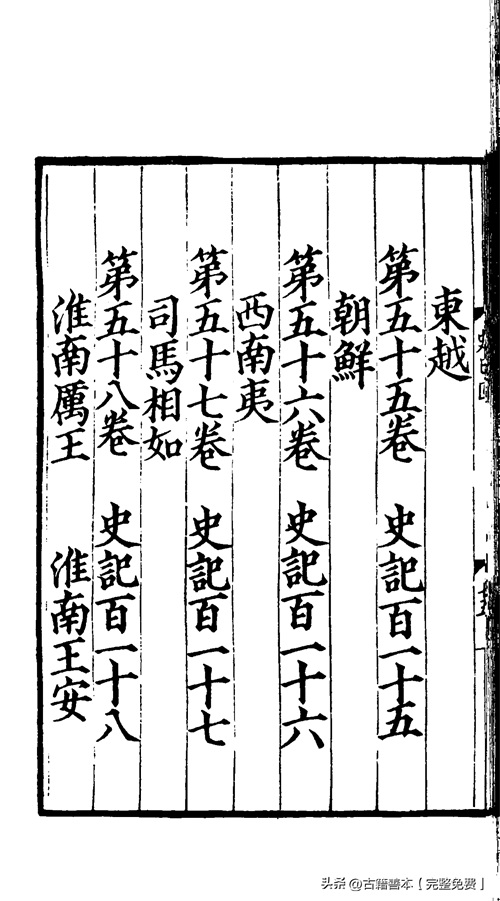 東越
第五十五卷 史記百一十五
朝鮮
第五十六卷 史記百一十六
西南夷
第五十七卷 史記百一十七
司馬相如
第五十八卷 史記百一十八
淮南厲王 淮南王安
头条 @古籍善本【完整免费】